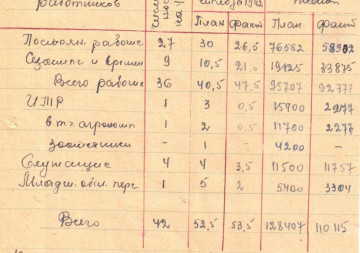 работников
План факт План факт
Постоян. рабочие 27 30 26,5 76582 58902
Сезонние и времен 9 10,5 21,0 19125 33875
Всего рабочих 36 40,5 47,5 95707 92777
ИТР 1 3 0,5 15900 2977
в т.ч. агрономи 1 2 0,5 11700 2277
зоотехники - 1 - 4200 -
Служащие 4 4 3,5 11500 11757
Младш. обсл. перс 1 5 2 5400 3304
Всего 42 52,5 53,5 128407 110115